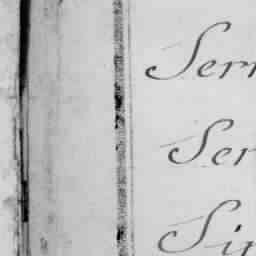 Serr
Ser
Sin